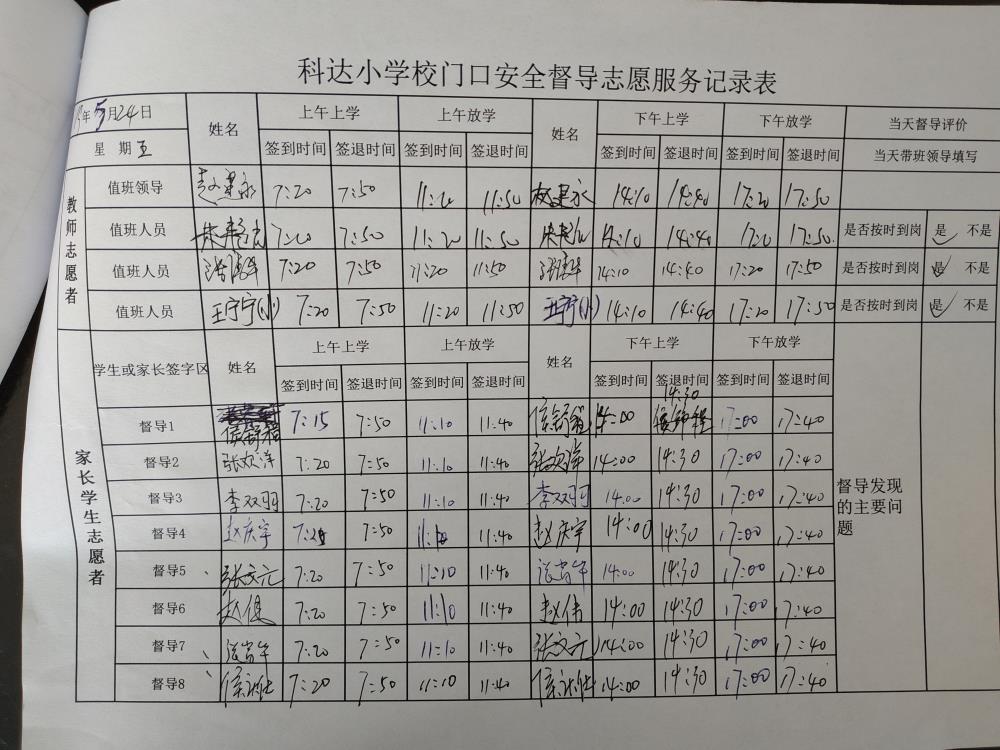 科达小学校门口安全督导志愿服务记录表
年5月24日 姓名 上午上学 上午放学 姓名 下午上学 下午放学 当天督导评价
星 期 五 签到时间 签退时间 签到时间 签退时间 签到时间 签退时间 签到时间 签退时间 当天带班领导填写
教师志愿者
值班领导 赵建永 7:20 7:50 11:20 11:50 赵建永 14:10 14:40 17:20 17:50
值班人员 7:20 7:50 11:20 11:50 14:10 14:40 17:20 17:50. 是否按时到岗 是✓ 不是
值班人员 7:20 7:50 11:20 11:50 14:10 14:40 17:20 17:50 是否按时到岗 是✓ 不是
值班人员 王宁宁(小) 7:20 7:50 11:20 11:50 王宁(小) 14:10 14:40 17:20 17:50 是否按时到岗 是✓ 不是
家长学生志愿者
学生或家长签字区 姓名 上午上学 上午放学 姓名 下午上学 下午放学
签到时间 签退时间 签到时间 签退时间 签到时间 签退时间 签到时间 签退时间
督导1 7:15 7:50 11:10 11:40 14:00 14:30 17:00 17:40
督导2 张欢洋 7:20 7:50 11:10 11:40 张欢洋 14:00 14:30 17:00 17:40
督导3 李双羽 7:20 7:50 11:10 11:40 李双羽 14:00 14:30 17:00 17:40
督导4 赵庆宇 7:50 11:10 11:40 赵庆宇 14:00 14:30 17:00 17:40
督导5 张文元 7:20 7:50 11:10 11:40 14:00 14:30 17:00 17:40
督导6 7:20 7:50 11:10 11:40 赵伟 14:00 14:30 17:00 17:40
督导7 7:20 7:50 11:10 11:40 张文元 14:00 14:30 17:00 17:40
督导8 7:20 7:50 11:10 11:40 14:00 14:30 17:00 17:40
督导发现
的主要问
题